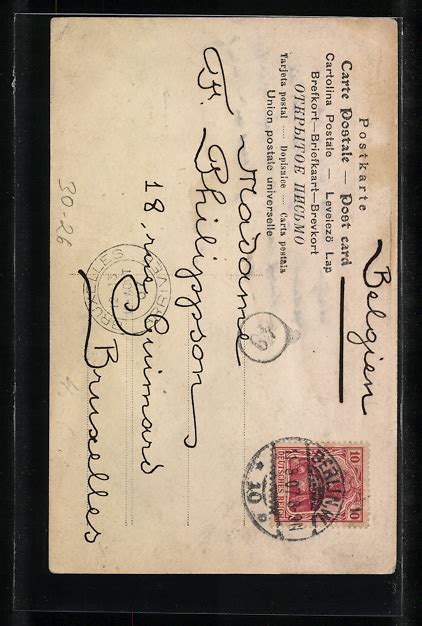 Postkarte
Carte Postale — Post card
Cartolina Postale — Levelező Lap
Brefkort—Briefkaart—Brevkort
ОТКРЫТОЕ ПИСЬМО
Tarjeta postal — Dopisnice — Carta poștala
Union postale universelle
Belgien
Madame
F. Philippson
18, rue Guimard
Bruxelles
30-26
BRUXELLES
BERLIN.W.
10
10
DEUTSCHES REICH
* 10 e